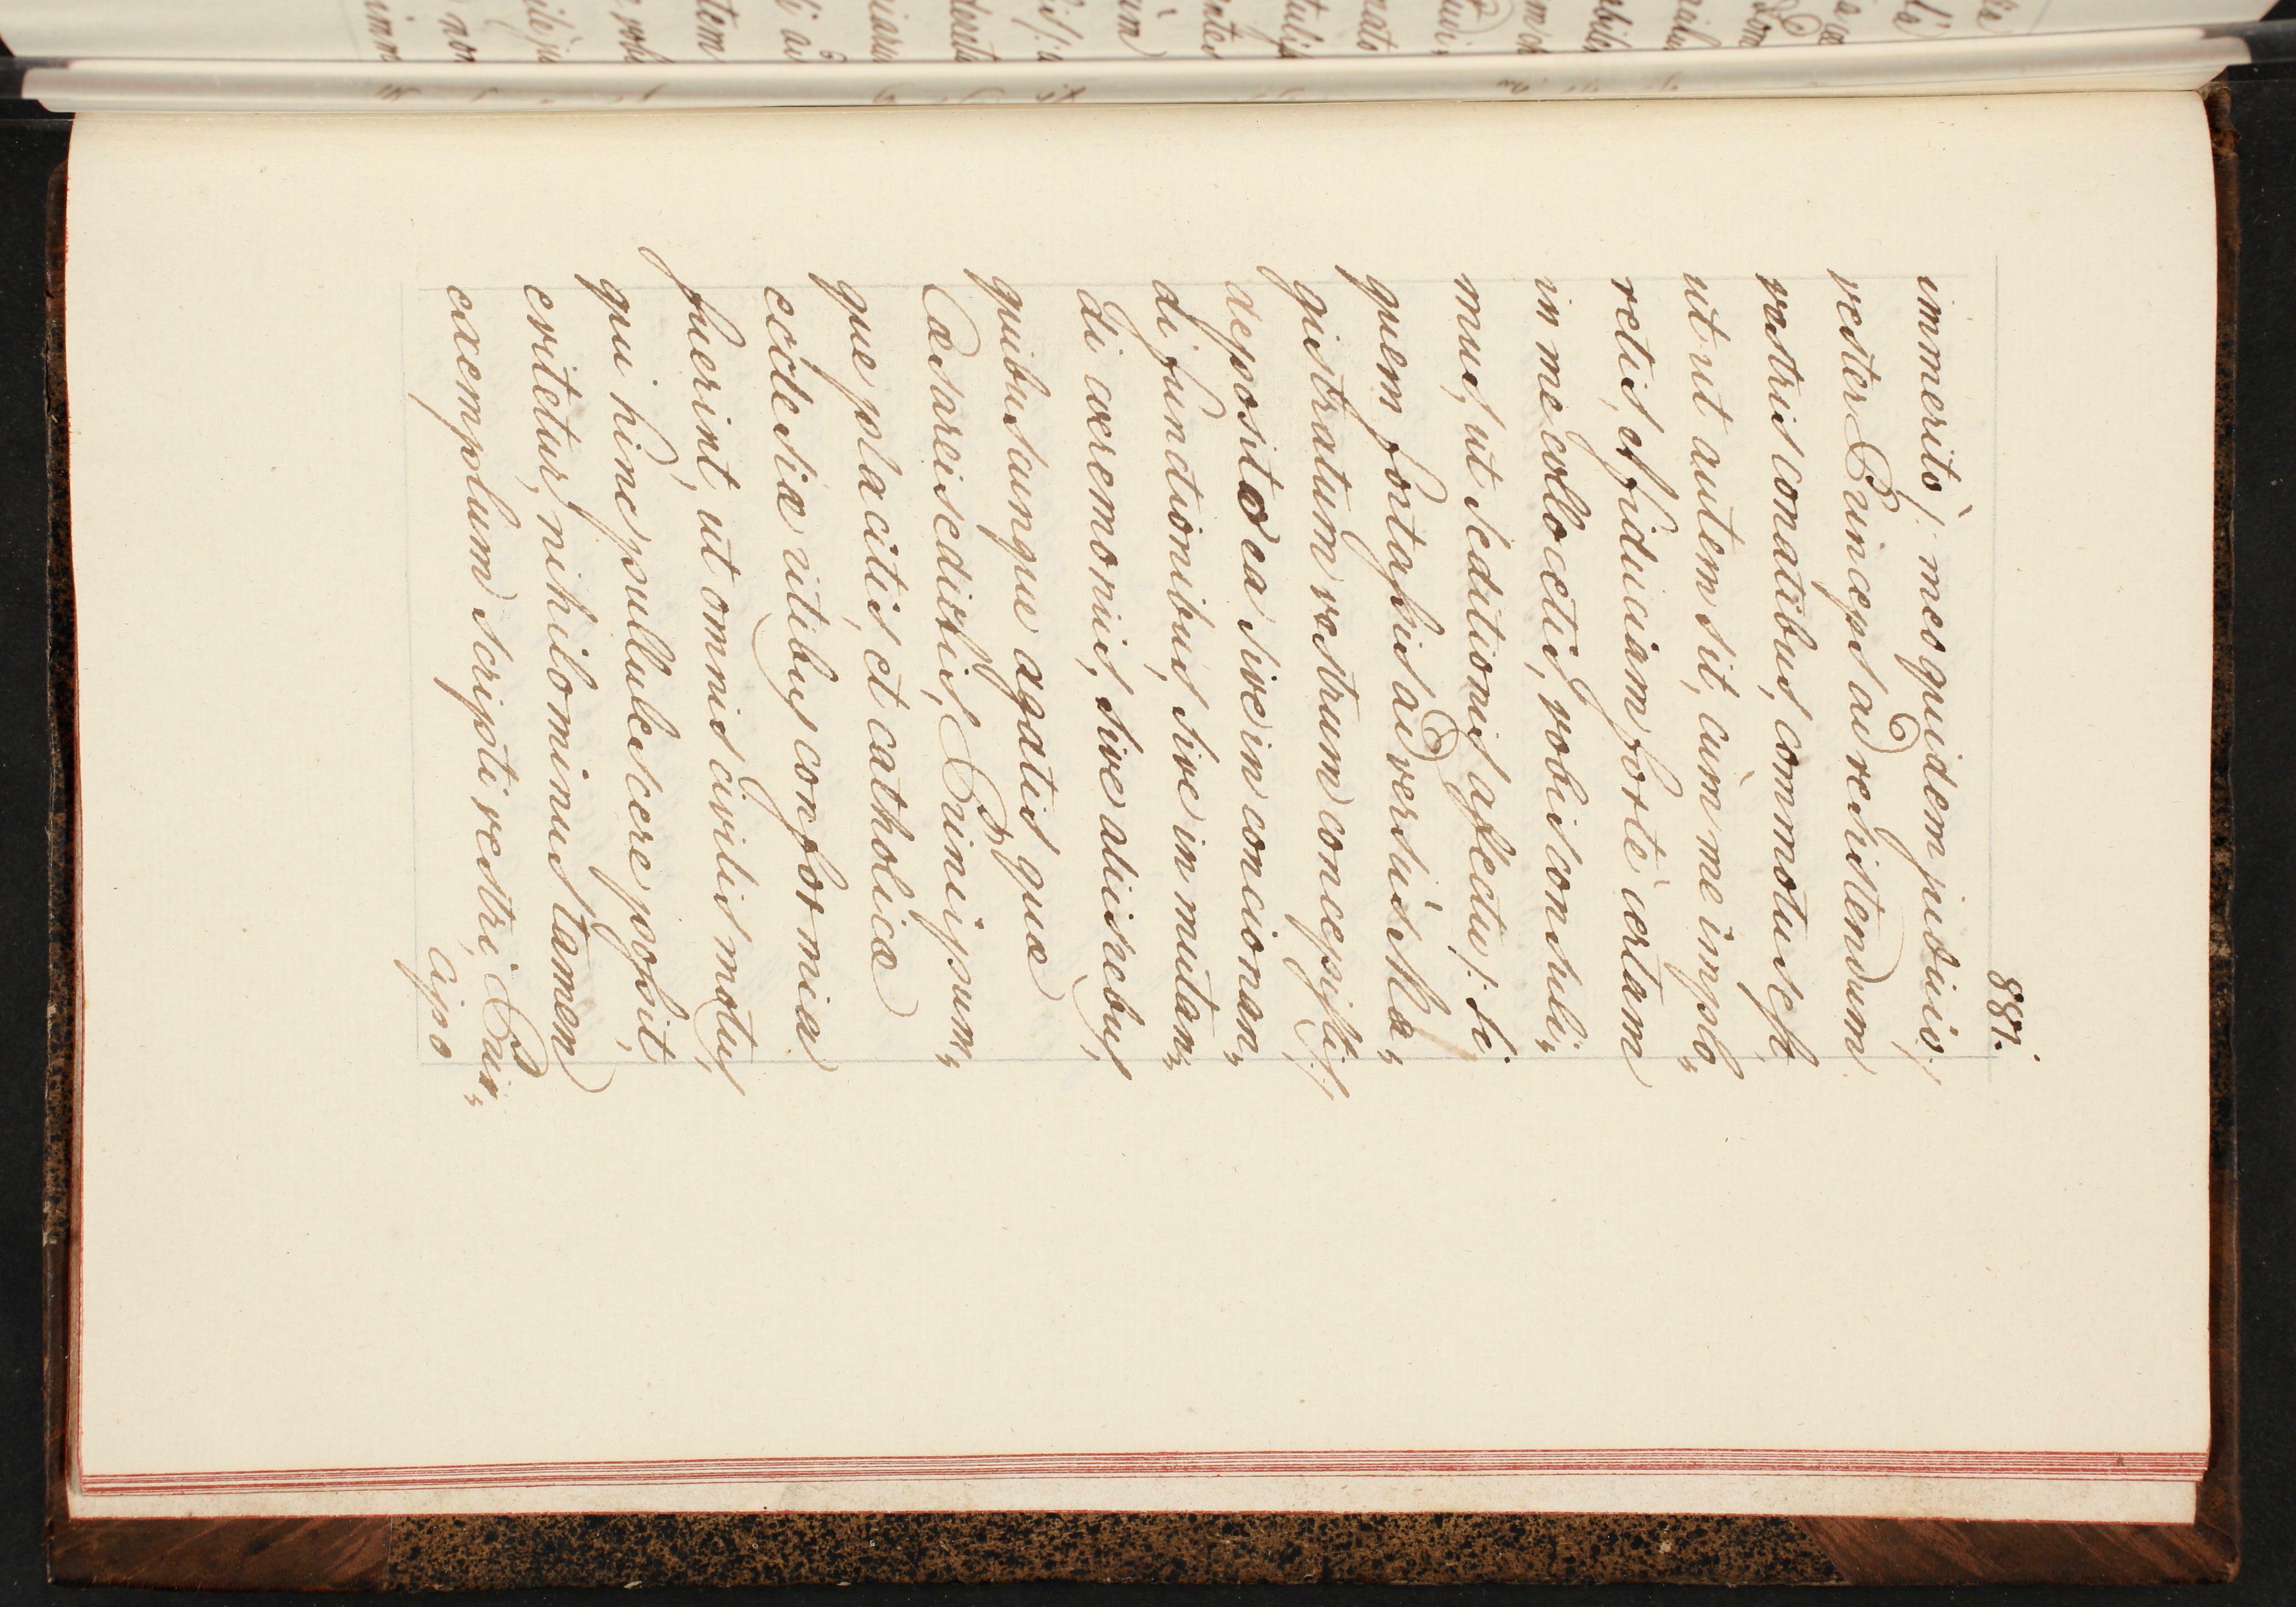 887.
immeritò /: meo quidem judicio,/
vester Princeps ad resistendum
vestris conatibus, commotus est,
ut ut autem sit, cùm me implo„
retis, et fiduciam fortè certam
in me collocetis, vobis consuli„
mus, ut seditionis affectu /: si
quem fortassis adversùs Ma„
gistratum vestrum concepistis :/
deposito ea sive in concionan„
di functionibus, sive in mutan„
di ceremoniis, sive aliis rebus,
quibuscunque agatis, quæ
Cæsareis edictis, Principum„
que placitis, et catholicæ
ecclesiæ ritibus conformia
fuerint, ut omnis civilis motus,
qui hinc pullulescere possit,
evitetur, nihilominus tamen
exemplum scripti vestri Prin„
cipo